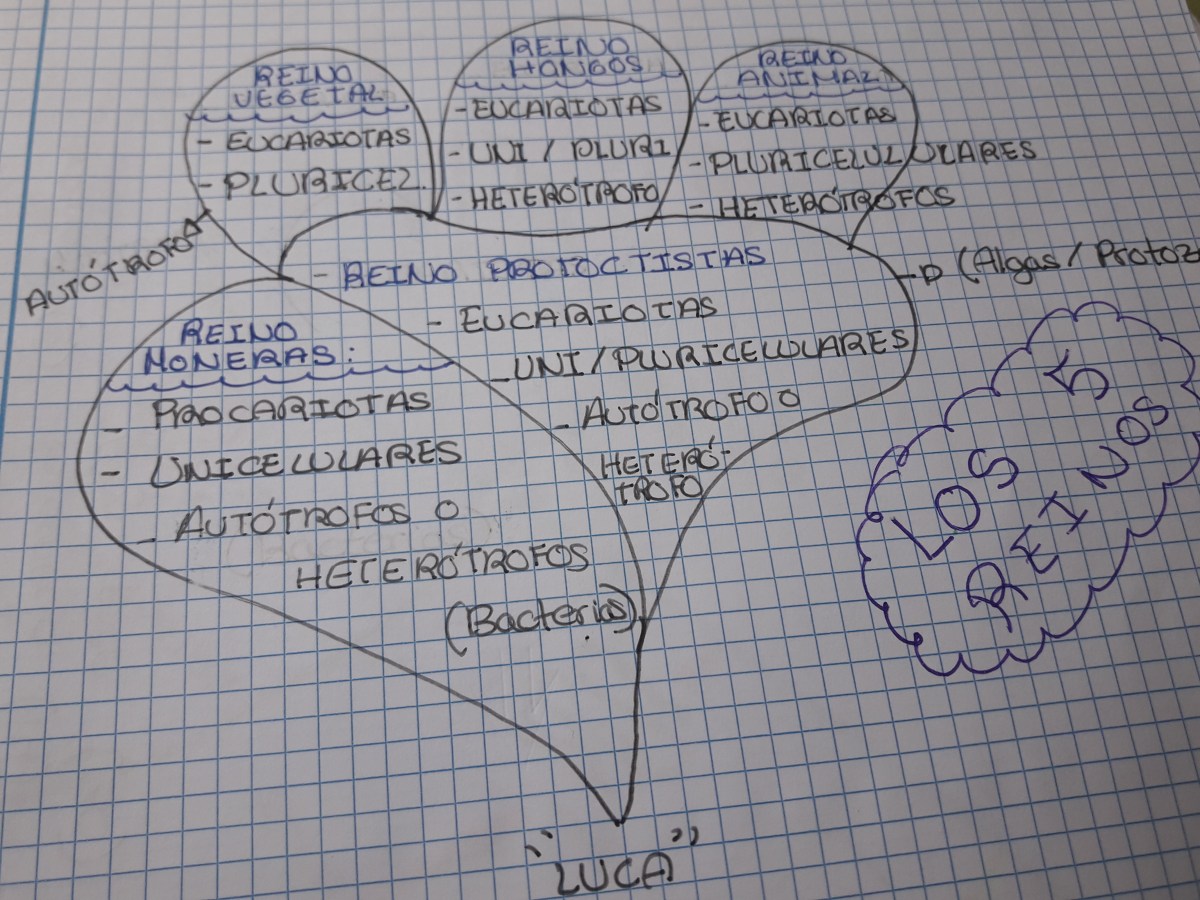 REINO
VEGETAL
- EUCARIOTAS
- PLURICEL.
AUTÓTROFO
REINO
HONGOS
- EUCARIOTAS
- UNI / PLURI
- HETERÓTROFO
REINO
ANIMAL
- EUCARIOTAS
- PLURICELULULARES
- HETERÓTROFOS
- REINO PROTOCTISTAS
(Algas / Protoz
- EUCARIOTAS
- UNI / PLURICELULARES
- AUTÓTROFO O
HETERÓ-
TROFO
REINO
MONERAS:
- PROCARIOTAS
- UNICELULARES
- AUTÓTROFOS O
HETERÓTROFOS
(Bacterias)
LOS 5
REINOS
"LUCA"